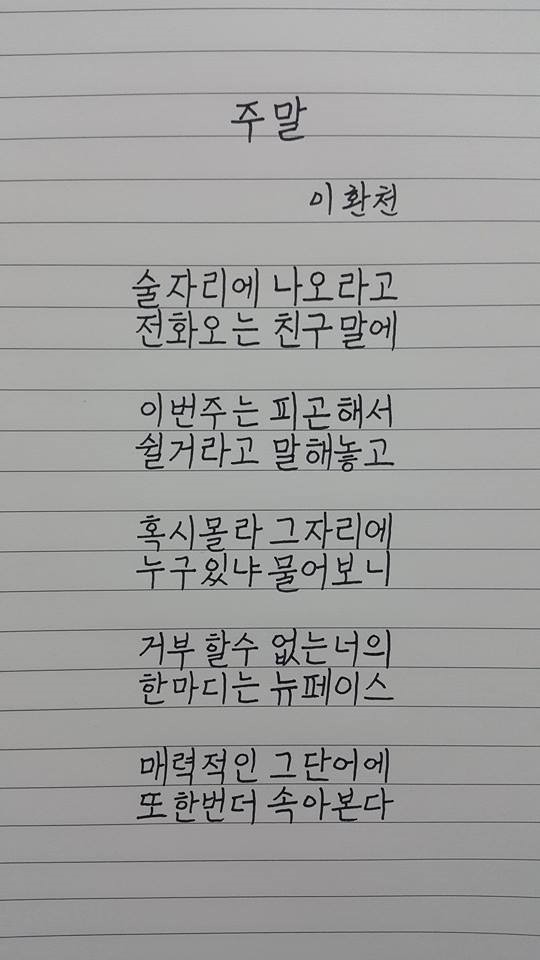 주말
이환천
술자리에 나오라고
전화오는 친구말에
이번주는 피곤해서
쉴거라고 말해놓고
혹시몰라 그자리에
누구있냐 물어보니
거부 할수 없는너의
한마디는 뉴페이스
매력적인 그단어에
또한번더 속아본다